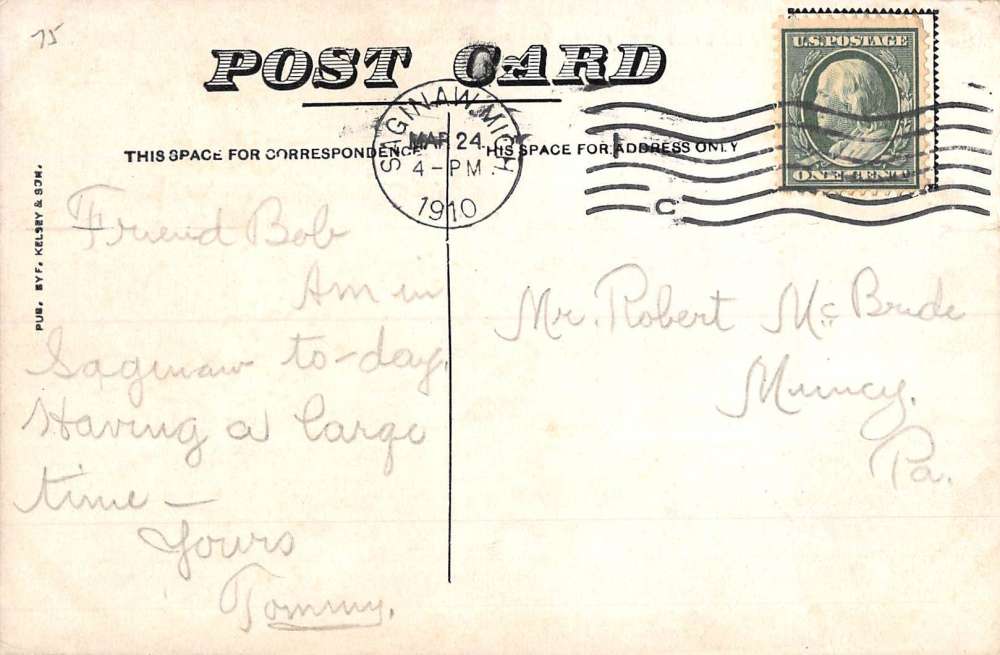 75
POST CARD
U.S. POSTAGE
ONE CENT
SAGINAW, MICH
MAR 24
4 - PM
1910
C
THIS SPACE FOR CORRESPONDENCE
THIS SPACE FOR ADDRESS ONLY
PUB. BY F. KELSEY & SON.
Friend Bob
Am in
Saginaw to-day.
Having a large
time —
Yours
Tommy.
Mr. Robert McBride
Muncy,
Pa.